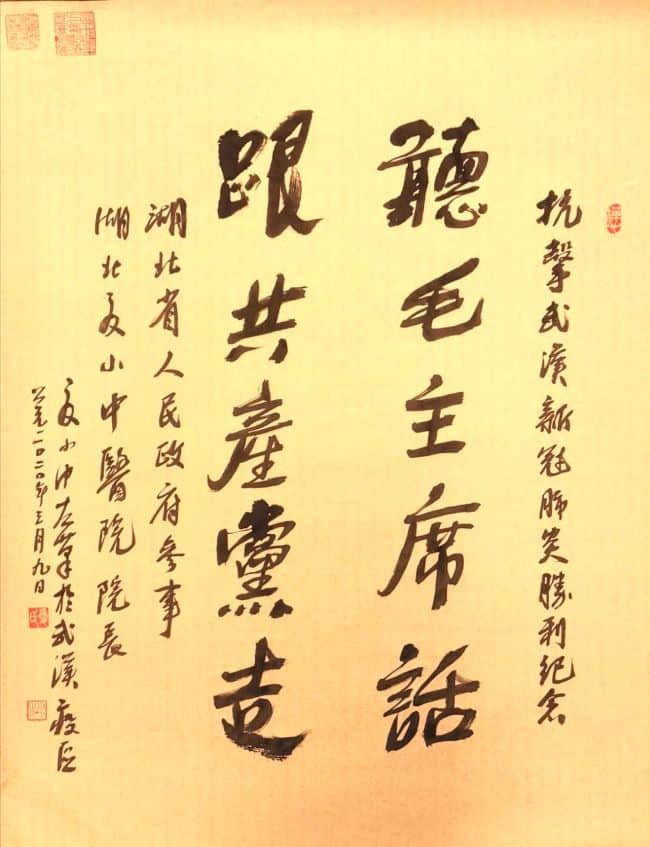 抗擊武漢新冠肺炎勝利紀念
聽毛主席話
跟共產黨走
湖北省人民政府參事
湖北夏小中醫院院長
夏小中左筆於武漢疫區
公元二〇二〇年三月九日